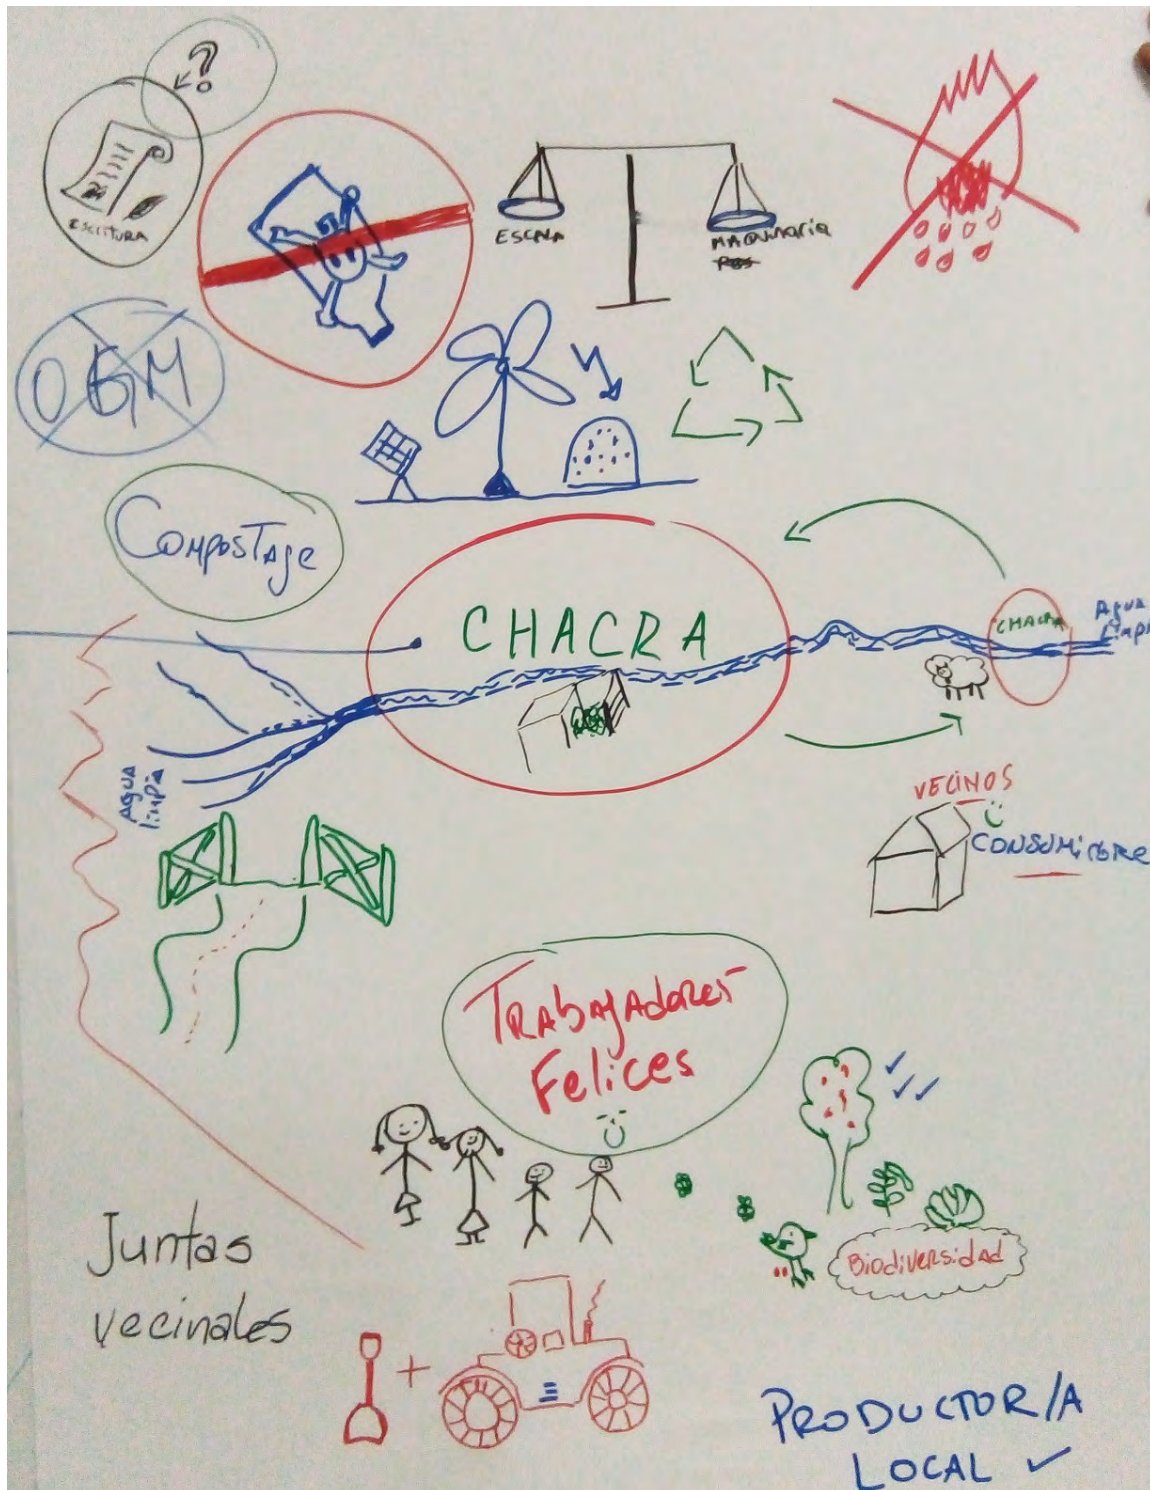 ?
ESCRITURA
ESCALA
MAQUINARIA
OGM
COMPOSTAJE
CHACRA
CHACRA
AGUA
Limpi
AGUA
limpia
VECINOS
TRABAJADORES
FELICES
Biodiversidad
Juntas
vecinales
+
PRODUCTOR/A
LOCAL ✓